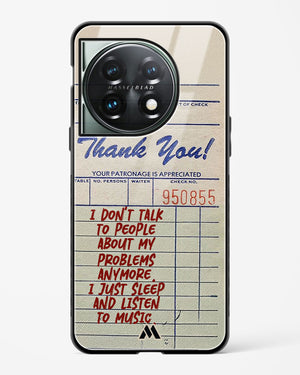 HASSELBLAD
T OF CHECK
Thank You!
YOUR PATRONAGE IS APPRECIATED
TABLE NO. PERSONS WAITER CHECK NO.
950855
I DON'T TALK
TO PEOPLE
ABOUT MY
PROBLEMS
ANYMORE.
I JUST SLEEP
AND LISTEN
TO MUSIC